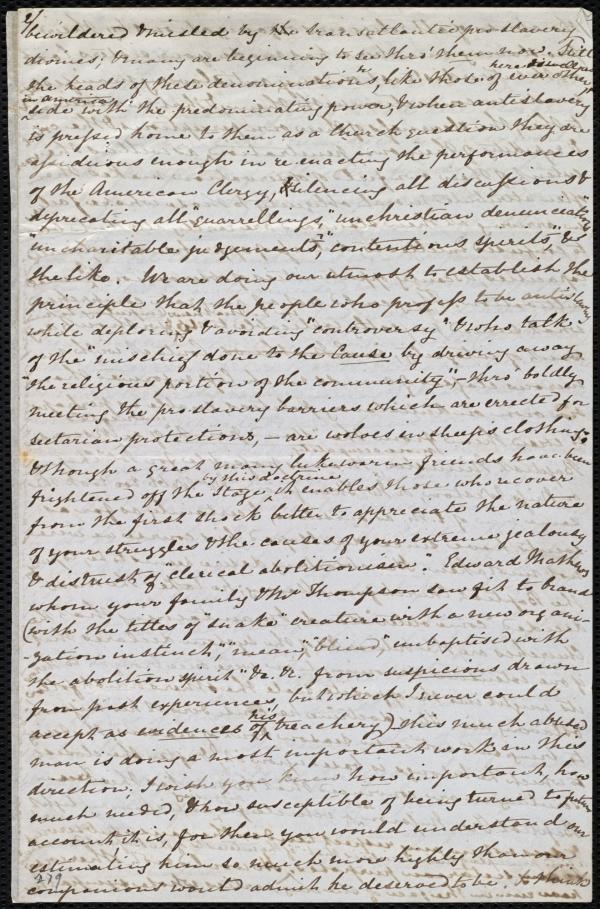 2/
bewildered & misled by the transatlantic proslavery
divines; & many are beginning to see thro' them now. Still
the heads of these denominations here as well as in america, like those of ever other,
side with the predominating power, & when antislavery
is pressed home to them as a Church question they are
assiduous enough in re-enacting the performances
of the American Clergy, silencing all discussions &
deprecating all "quarrellings," "unchristian denunciations"
"uncharitable judgements," "contentious spirits," &
the like. We are doing our utmost to establish the
principle that the people who profess to be antislavery
while deploring & avoiding "controversy" & who talk
of the "mischief done to the Cause by driving away
"the religious portion of the community" - thro' boldly
meeting the proslavery barriers which are erected for
sectarian protections, - are wolves in sheep's clothing:
& though a great many lukewarm friends have been
frightened off the stage by this doctrine, it enables those who recover
from the first shock better to appreciate the nature
of your struggles & the causes of your extreme jealousy
& distrust of "clerical abolitionism". Edward Mathews
whom your family & Mr Thompson saw fit to brand
(with the titles of snake "creature with a new organi-
-zation instinct," "mean," "blind," "unbaptised with
the abolition spirit" &c. &c. from suspicions drawn
from past experience, but which I never could
accept as evidences of his treachery) - this much abused
man is doing a most important work in this
direction. I wish you knew how important, how
much needed, & how susceptible of being turned to future
account it is, for then you would understand our
estimating him so much more highly than our
companions wont admit he deserved to be, to thank
279